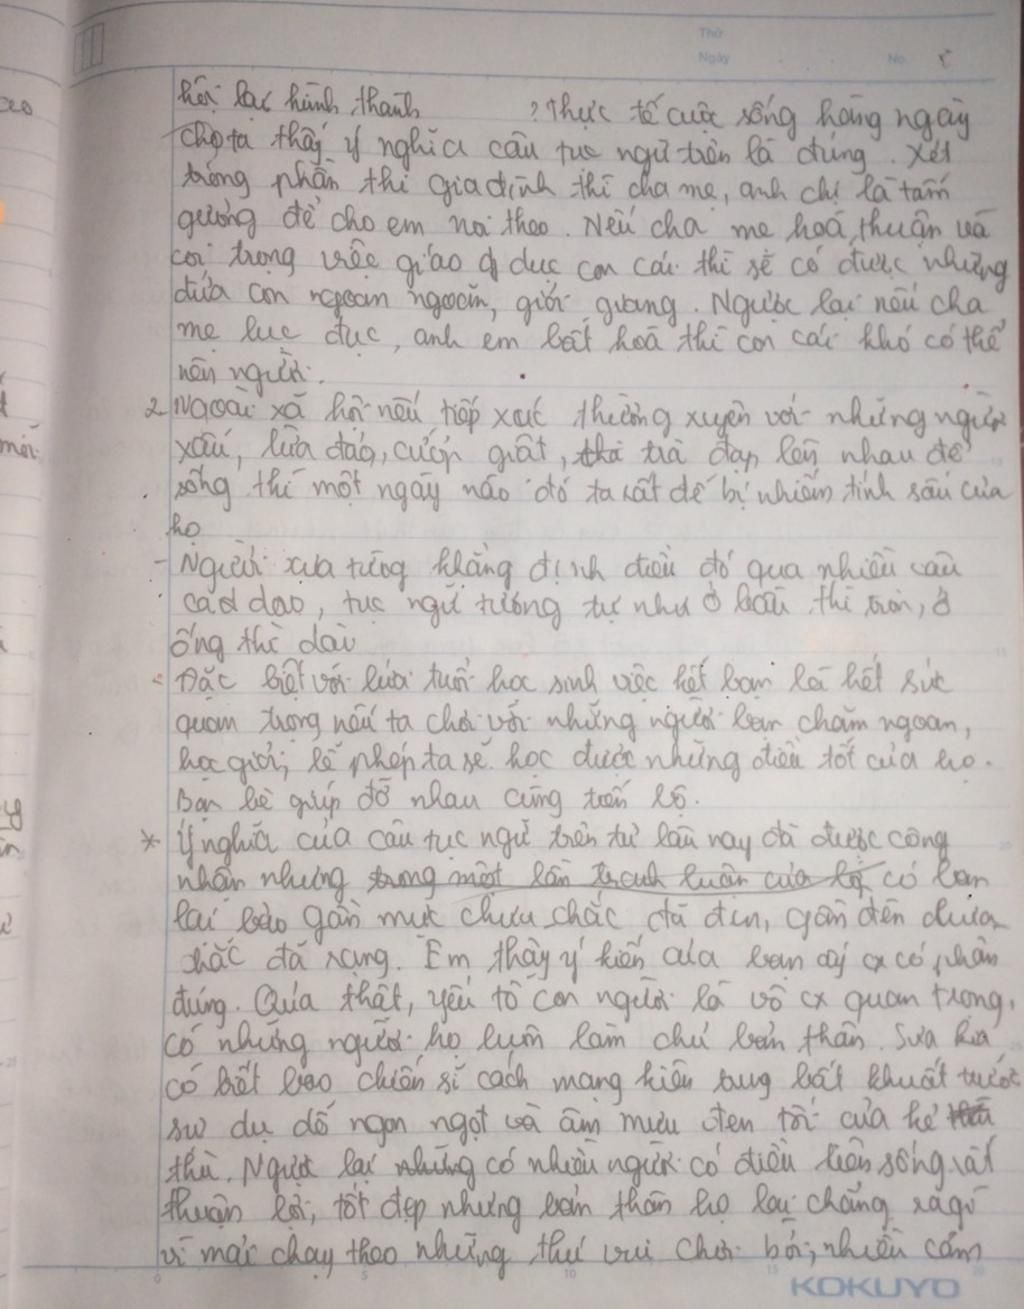 Thứ
Ngày No.
hội lạc hình thành ? Thực tế cuộc sống hàng ngày
cho ta thấy ý nghĩa câu tục ngữ trên là đúng. Xét
trong phần thi gia đình thì cha mẹ, anh chị là tấm
gương để cho em noi theo. Nếu cha mẹ hoà thuận và
coi trọng việc giáo dục con cái thì sẽ có được những
đứa con ngoan ngoãn, giỏi giang. Ngược lại nếu cha
mẹ lục đục, anh em bất hoà thì con cái khó có thể
nên người.
2 Ngoài xã hội nếu tiếp xúc thường xuyên với những người
xấu, lừa đảo, cướp giật, trà đạp lên nhau để
sống thì một ngày nào đó ta rất dễ bị nhiễm tính sấu của
họ
- Người xưa từng khẳng định điều đó qua nhiều câu
ca dao, tục ngữ tương tự như ở bầu thì tròn, ở
ống thì dài
- Đặc biệt với lứa tuổi học sinh việc kết bạn là hết sức
quan trọng nếu ta chơi với những người bạn chăm ngoan,
học giỏi, lễ phép ta sẽ học được những điều tốt của họ.
Bạn bè giúp đỡ nhau cùng tiến bộ.
* Ý nghĩa của câu tục ngữ trên từ lâu nay đã được công
nhận nhưng trong một lần tranh luận của lớp có bạn
lại bảo gần mực chưa chắc đã đen, gần đèn chưa
chắc đã rạng. Em thấy ý kiến của bạn ấy cx có phần
đúng. Qủa thật, yếu tố con người là vô cx quan trọng,
có những người họ luôn làm chủ bản thân. Sưa kia
có biết bao chiến sĩ cách mạng kiên trung bất khuất trước
sự dụ dỗ ngon ngọt và âm mưu đen tối của kẻ
thù. Ngược lại những có nhiều người có điều kiện sống rất
thuận lợi, tốt đẹp nhưng bản thân họ lại chẳng ra gì
vì mải chạy theo những thú vui chơi bời, nhiều cám
KOKUYO